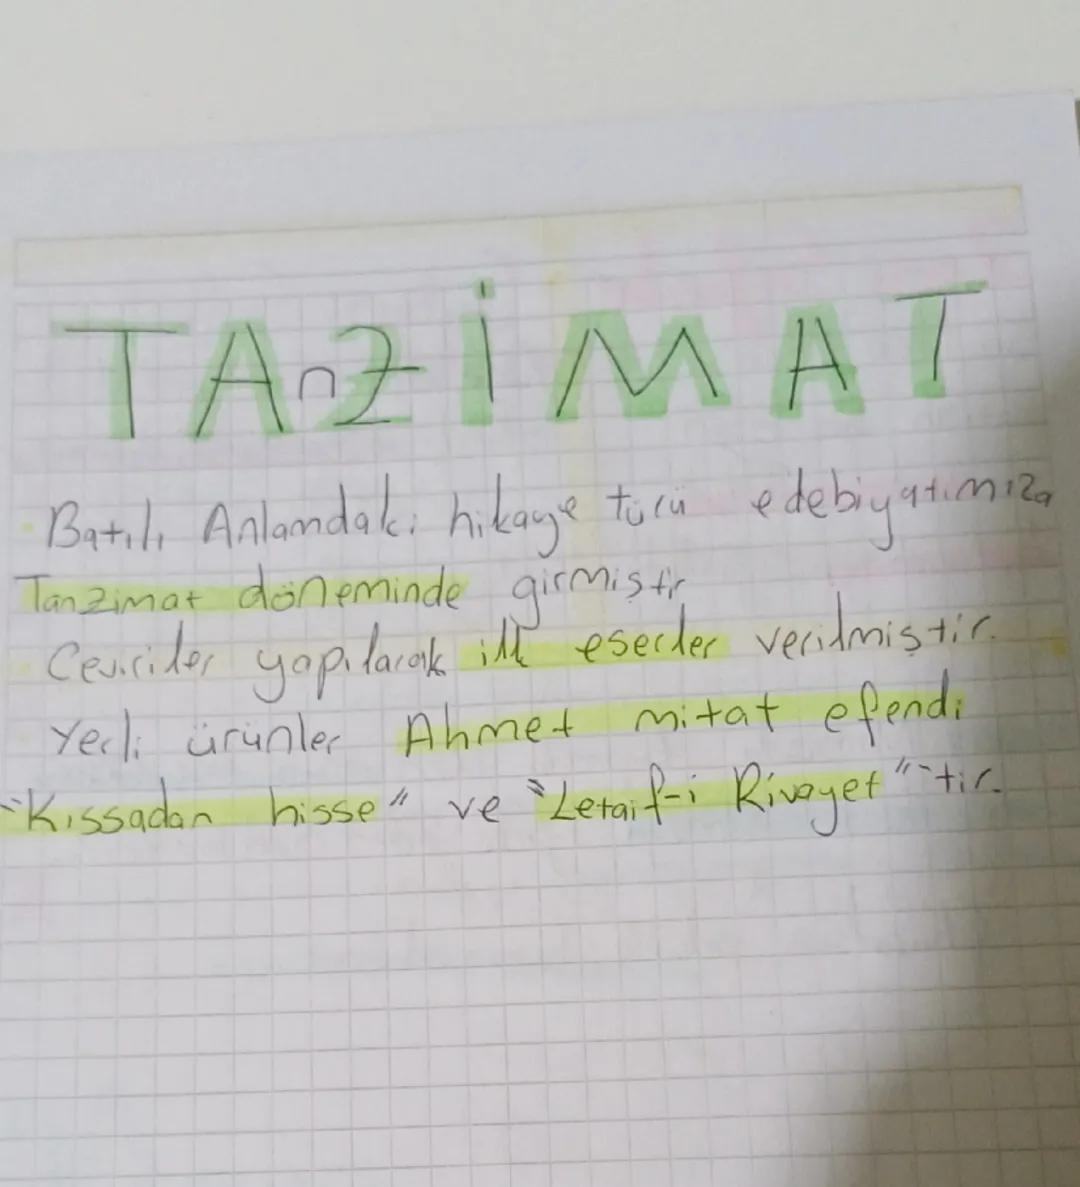 TAnZİMAT
Batılı Anlamdaki hikaye türü edebiyatımıza
Tanzimat döneminde girmiştir
Ceviriler yapılarak ilk eserler verilmiştir.
Yerli ürünler Ahmet mitat efendi
"Kıssadan hisse" ve "Letaif-i Rivayet"tir.